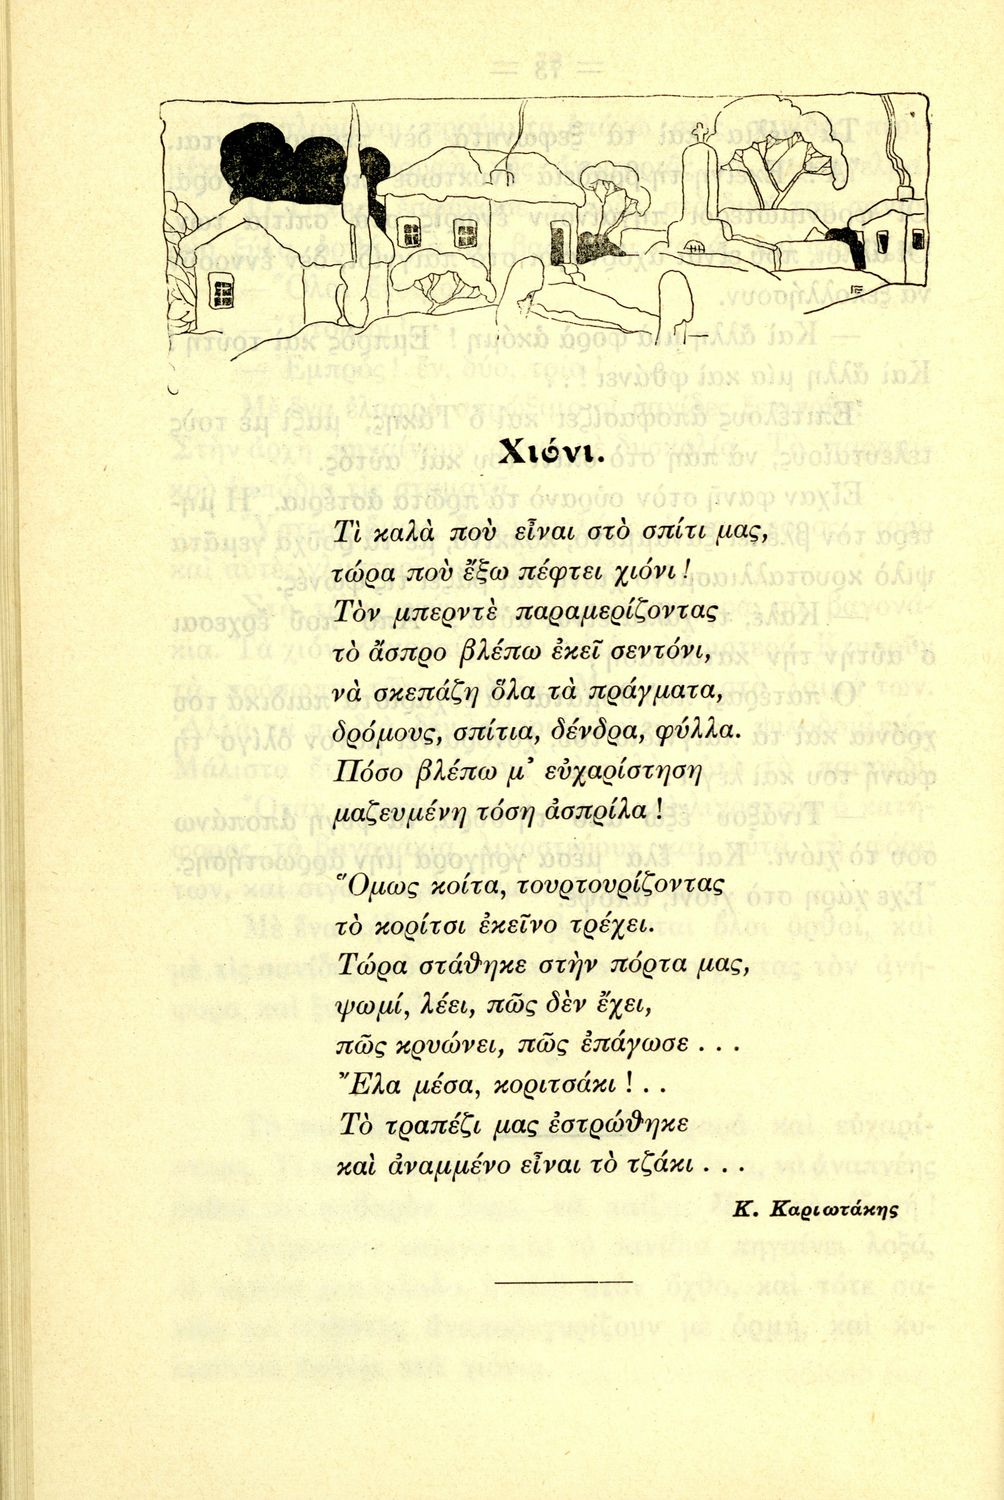 Χιόνι.
Τὶ καλὰ ποὺ εἶναι στὸ σπίτι μας,
τώρα ποὺ ἔξω πέφτει χιόνι!
Τὸν μπερντὲ παραμερίζοντας
τὸ ἄσπρο βλέπω ἐκεῖ σεντόνι,
νὰ σκεπάζη ὅλα τὰ πράγματα,
δρόμους, σπίτια, δένδρα, φύλλα.
Πόσο βλέπω μ' εὐχαρίστηση
μαζευμένη τόση ἀσπρίλα!
Ὅμως κοίτα, τουρτουρίζοντας
τὸ κορίτσι ἐκεῖνο τρέχει.
Τώρα στάθηκε στὴν πόρτα μας,
ψωμί, λέει, πῶς δὲν ἔχει,
πῶς κρυώνει, πῶς ἐπάγωσε . . .
Ἔλα μέσα, κοριτσάκι ! . .
Τὸ τραπέζι μας ἐστρώθηκε
καὶ ἀναμμένο εἶναι τὸ τζάκι . . .
Κ. Καριωτάκης